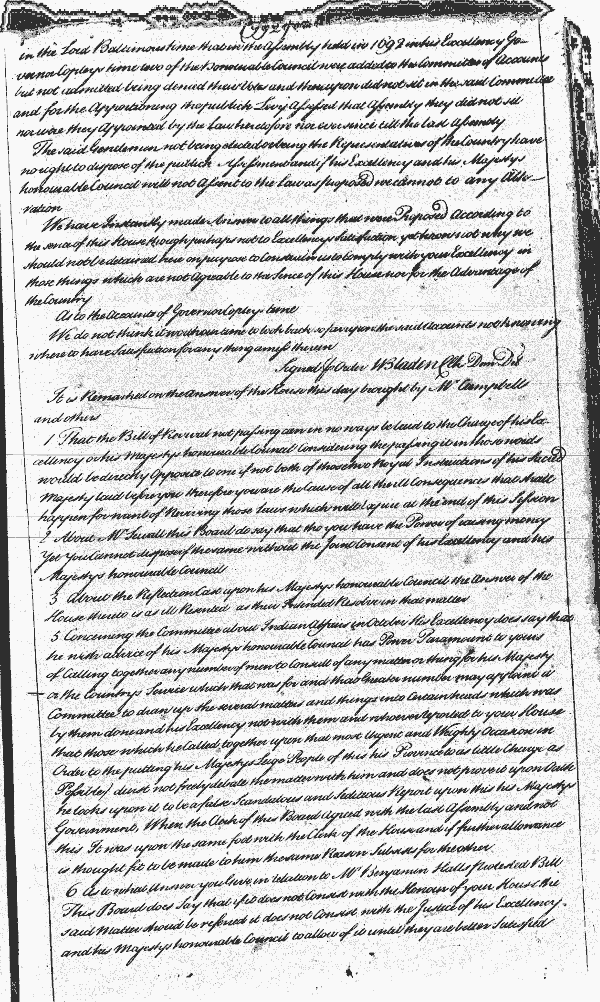 in the Lord Baltimores time that in the Assembly held in 1692 in his Excellency Go-
vernor Copleys time two of the Honourable Council were added to the Committee of Accounts
but not admitted being denied their Votes and thereupon did not sit in the said Committee
and for the Apportioning the publick Levy Assessed that Assembly they did not sit
nor were they Appointed by the Law therefore nor ever since till the last Assembly
The said Gendemen not being elected or being the Representatives of the Country have
no right to dispose of the publick Assessment and if his Excellency and his Majestys
honourable Council will not Assent to the Law as proposed we cannot to any Alte-
ration
We have Instantly made Answer to all things that were Proposed According to
the sence of this House though perhaps not to Excellencys Satisfaction yet know not why we
should not be detained here on purpose to Constrain us to comply with your Excellency in
those things which are not Agreable to the Sence of this House nor for the Advantage of
the Country
As to the Accounts of Governor Copleys time
We do not think it worth our time to look back so far upon the said Accounts not knowing
where to have Satisfaction for any thing amiss therein
Signed p Order W Bladen Clk Dom Del
It is Remarked on the Answer of the House this day brought by Mr Campbell
and others
1 That the Bill of Revival not passing can in no ways be laid to the Charge of his Ex-
cellency or his Majestys honourable Council Considering the passing it in those words
would be directly Opposite to one if not both of those two Royal Instructions of his Sacred
Majesty laid before you therefore you are the Cause of all the ill Consequences that shall
happen for want of Reviving those Laws which will expire at the end of this Session
2 About Mr Sewall this Board do say that tho you have the Power of raising money
Yet you Cannot dispose of the same without the Joint Consent of his Excellency and his
Majestys honourable Council
3 About the Reflection Cast upon his Majestys honourable Council the Answer of the
House thereto is as ill Resented as their Intended Resolve in that matter
5 Concerning the Committee about Indian Affairs in October His Excellency does say that
he with advice of his Majestys honourable Council has Power Paramount to yours
of Calling together any number of men to Consult of any matter or thing for his Majesty
or the Countrys Service which that was for and that a Greater number may appoint a
Committee to draw up the several matters and things into Certain heads which was
by them done and his Excellency not with them and whoever reported to your House
that those which he Called together upon that most Urgent and Weighty Occasion in
Order to the putting his Majestys Leige People of this his Province to as little Charge as
Possible) durst not freely debate the matter with him and does not prove it upon Oath
he looks upon it to be a false Scandalous and Seditious Report upon this his Majestys
Government, When the Clerk of this Board Agreed with the last Assembly and not
this It was upon the same foot with the Clerk of the House and if further allowance
is thought fit to be made to him the same Reason Subsists for the other
6 as to what Answer you Give in relation to Mr Benjamin Halls protested Bill
This Board does Say that if it does not Consist with the Honour of your House the
said Matter should be referred it does not Consist with the Justice of his Excellency
and his Majestys honourable Council to allow of it until they are better Satisfied